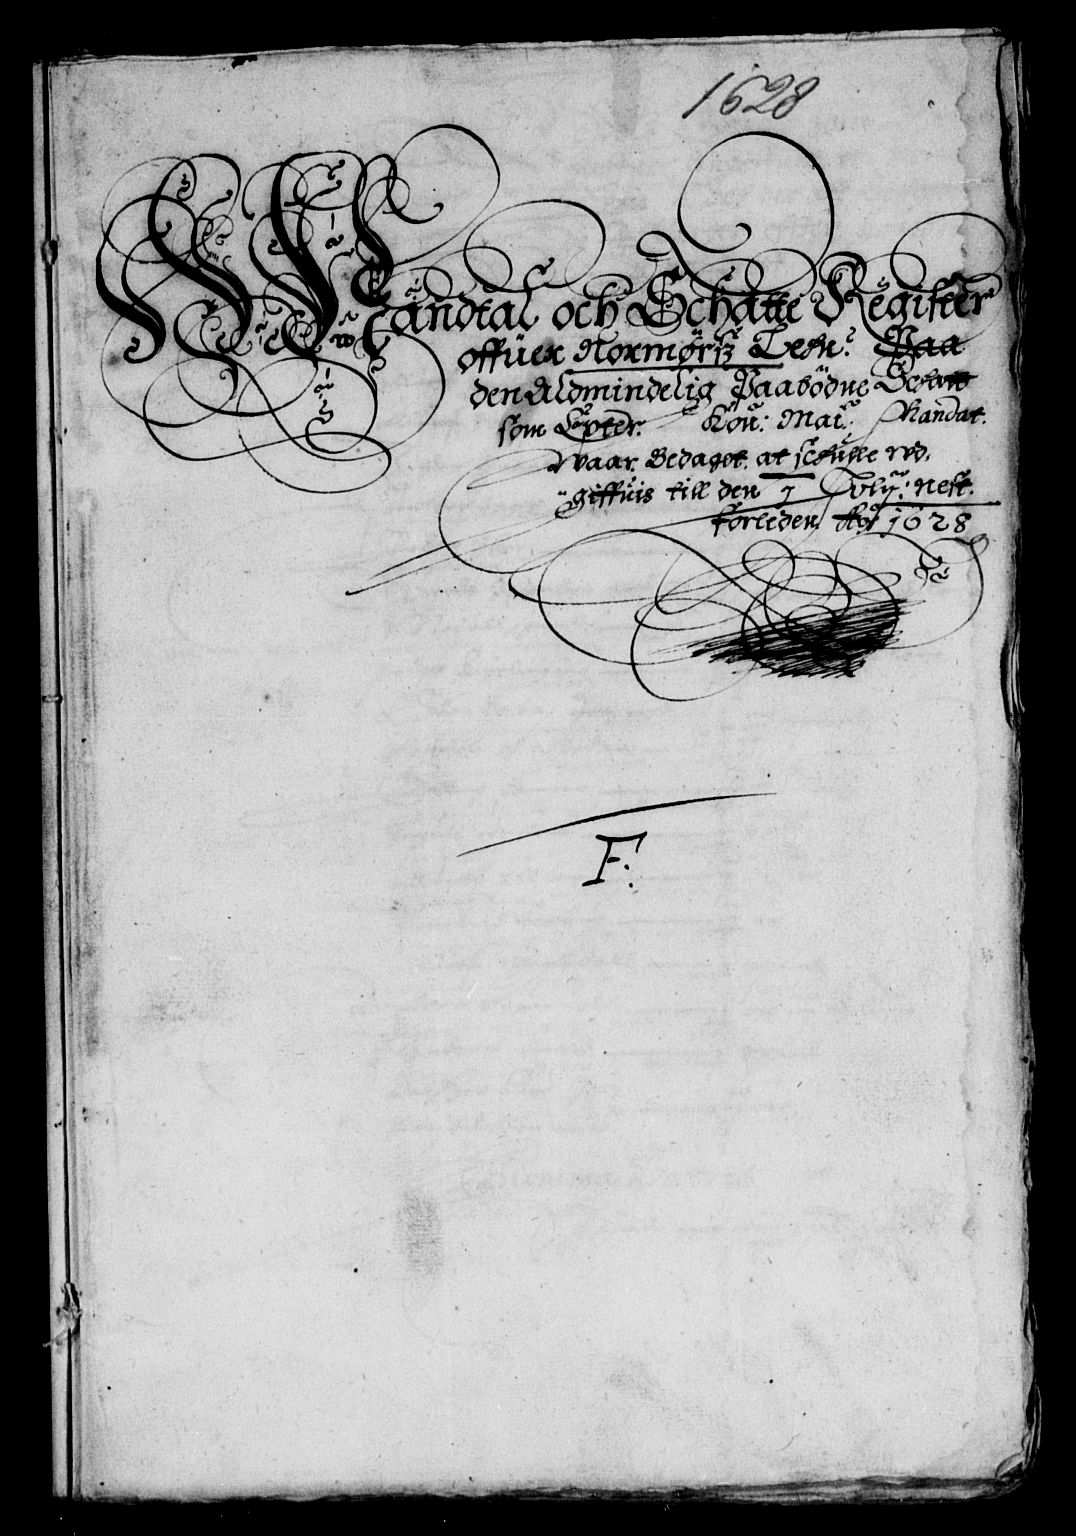 1628
Mandtal och Schatte Register
offuer Normørß Lehn: Paa
den Aldmindelig Paabödne Schatt
som Epter. Kon: Mai: Mandat.
waar Bedaget. at schulle vd.
giffuis till den 1 July: nest.
forleden Aar 1628
F: